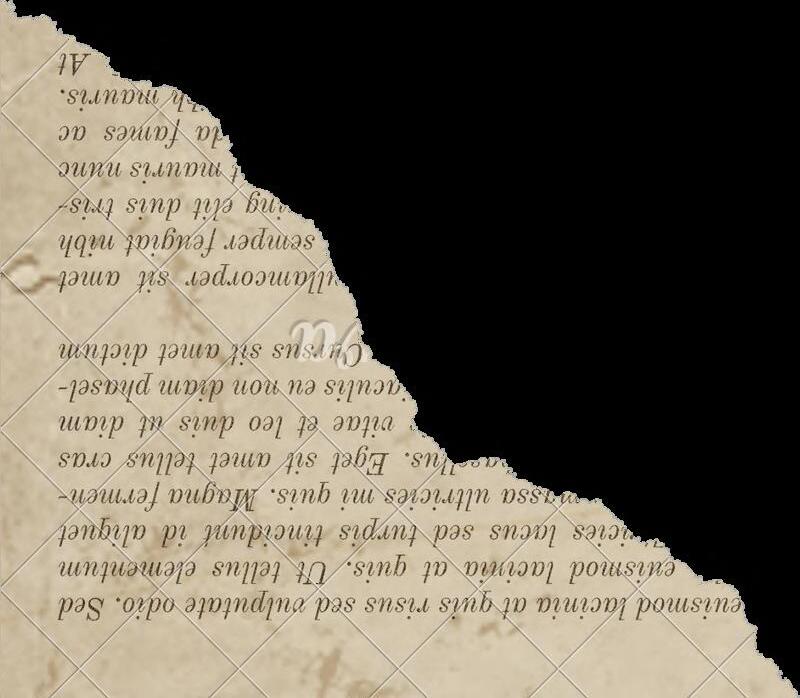 euismod lacinia at quis risus sed vulputate odio. Sed
euismod lacinia at quis. Ut tellus elementum
lacus sed turpis tincidunt id aliquet
massa ultricies mi quis. Magna fermen-
Eget sit amet tellus cras
vitae et leo duis ut diam
iaculis eu non diam phasel-
Cursus sit amet dictum
ullamcorper sit amet
semper feugiat nibh
ing elit duis tris-
mauris nunc
da fames ac
mauris.
At